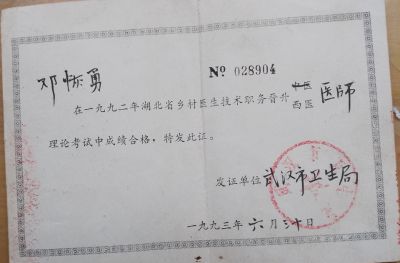 邓怀勇
№ 028904
在一九九二年湖北省乡村医生技术职务晋升 中医 西医 医师
理论考试中成绩合格，特发此证。
发证单位 武汉市卫生局
一九九三年 六月三十日